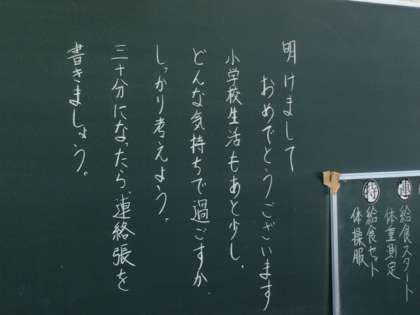 明けまして
おめでとうございます
小学校生活もあと少し。
どんな気持ちで過ごすか
しっかり考えよう。
三十分になったら、連絡張を
書きましょう。
給食スタート
体重測定
給食セット
体操服